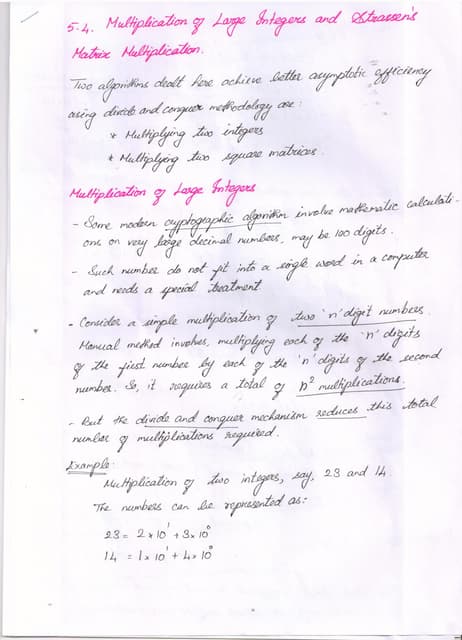 5.4. Multiplication of Large Integers and Strassen's
Matrix Multiplication.
Two algorithms dealt here achieve better asymptotic efficiency
using divide and conquer methodology are:
* Multiplying two integers
* Multiplying two square matrices.
Multiplication of Large Integers
- Some modern cryptographic algorithm involve mathematic calculati-
ons on very large decimal numbers, may be 100 digits.
- Such number do not fit into a single word in a computer
and needs a special treatment.
- Consider a simple multiplication of two 'n' digit numbers.
Manual method involves, multiplying each of the 'n' digits
of the first number by each of the 'n' digits of the second
number. So, it requires a total of n² multiplications.
- But the divide and conquer mechanism reduces this total
number of multiplications required.
Example:
Multiplication of two integers, say, 23 and 14.
The numbers can be represented as:
23 = 2 x 10¹ + 3 x 10⁰
14 = 1 x 10¹ + 4 x 10⁰